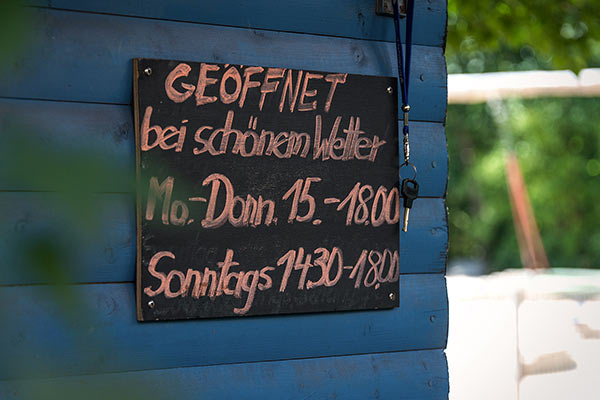 GEÖFFNET
bei schönem Wetter
Mo.-Donn. 15.-18.00
Sonntags 14.30-18.00